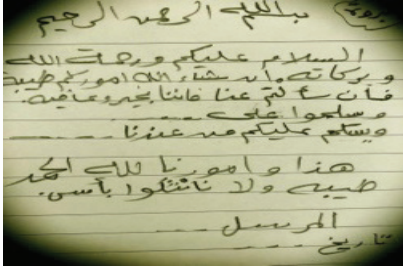 بسم الله الرحمن الرحيم
السلام عليكم ورحمة الله
وبركاته وان شاء الله اموركم طيبة
فأن سألتم عنا فاننا بخير وعافيه.
وسلموا على ------
ويسلم عليكم من عندنا ------
هذا وامورنا لله الحمد
طيبه ولا نشكوا بأس.
المرسل ----
تاريخ ----